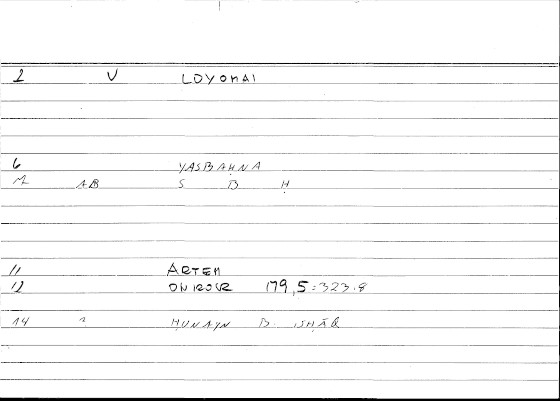 1 V LOYOMAI
6 YASBAḤNA
M AB S B Ḥ
11 ARTEM
12 ONIROCR 179,5:323.8
14 2 ḤUNAYN B. ISḤĀQ